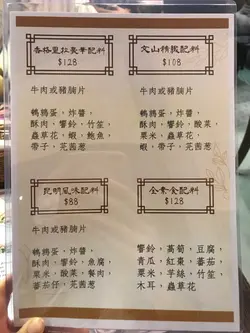 香格里拉豪華配料
$128
牛肉或豬腩片
鵪鶉蛋，炸醬，
酥肉，響鈴，竹笙，
蟲草花，蝦，鮑魚，
帶子，芫茜葱
文山精緻配料
$108
牛肉或豬腩片
鵪鶉蛋，炸醬，
酥肉，響鈴，酸菜，
粟米，蟲草花，
蝦，芫茜葱
昆明風味配料
$88
牛肉或豬腩片
鵪鶉蛋，炸醬，
酥肉，響鈴，魚腐，
粟米，酸菜，餐肉，
番茄仔，芫茜葱
全素食配料
$128
響鈴，萵筍，豆腐
青瓜，紅棗，番茄，
粟米，芋絲，竹笙，
木耳，蟲草花